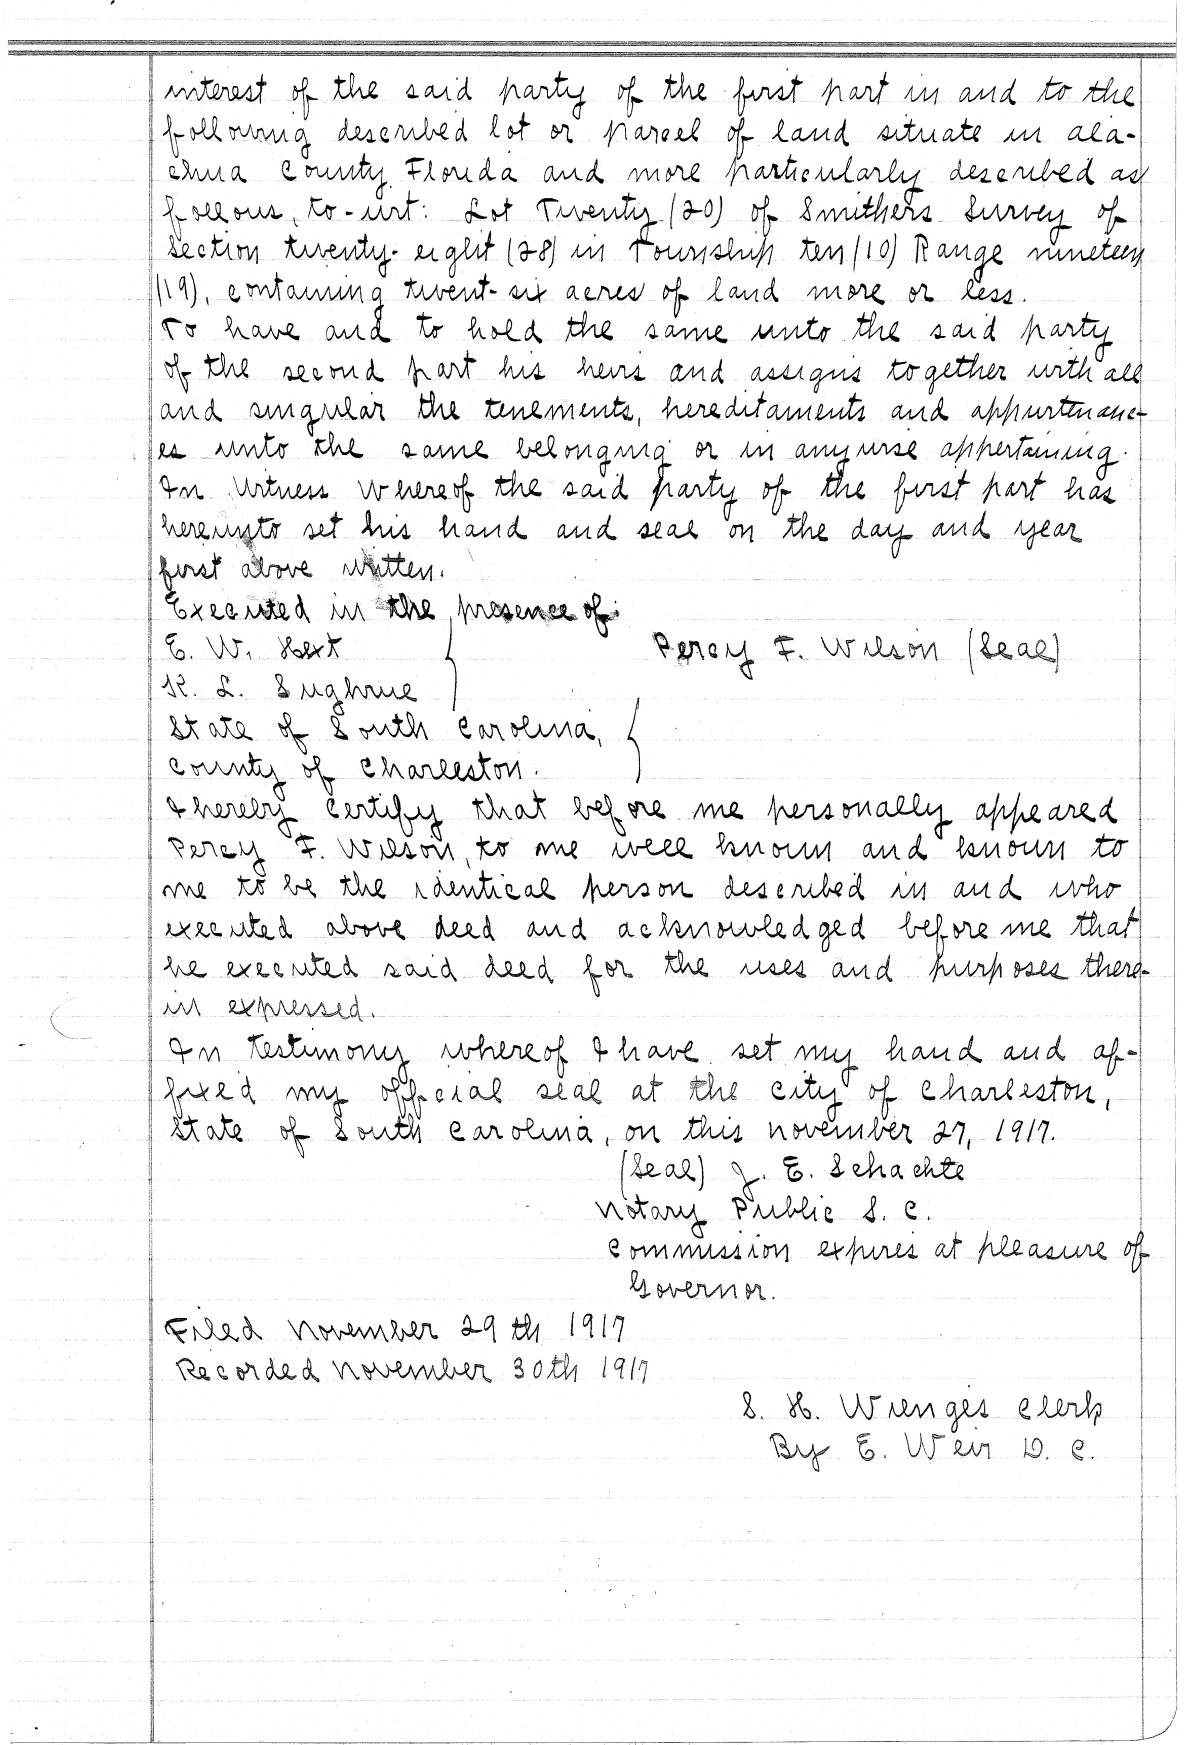 interest of the said party of the first part in and to the
following described lot or parcel of land situate in Ala-
chua County, Florida and more particularly described as
follows, to-wit: Lot Twenty (20) of Smithers Survey of
Section twenty-eight (28) in Township ten (10) Range nineteen
(19), containing twent-six acres of land more or less.
To have and to hold the same unto the said party
of the second part his heirs and assigns together with all
and singular the tenements, hereditaments and appurtenanc-
es unto the same belonging or in anywise appertaining.
In Witness Whereof the said party of the first part has
hereunto set his hand and seal on the day and year
first above written.
Executed in the presence of:
E. W. Hext
Percy F. Wilson (Seal)
K. L. Sughrue
State of South Carolina,
County of Charleston.
I hereby certify that before me personally appeared
Percy F. Wilson, to me well known and known to
me to be the identical person described in and who
executed above deed and acknowledged before me that
he executed said deed for the uses and purposes there-
in expressed.
In testimony whereof I have set my hand and af-
fixed my official seal at the city of Charleston,
State of South Carolina, on this November 27, 1917.
(Seal) J. E. Schachte
Notary Public S. C.
Commission expires at pleasure of
Governor.
Filed November 29th 1917
Recorded November 30th 1917
S. H. Wienges Clerk
By E. Weir D. C.